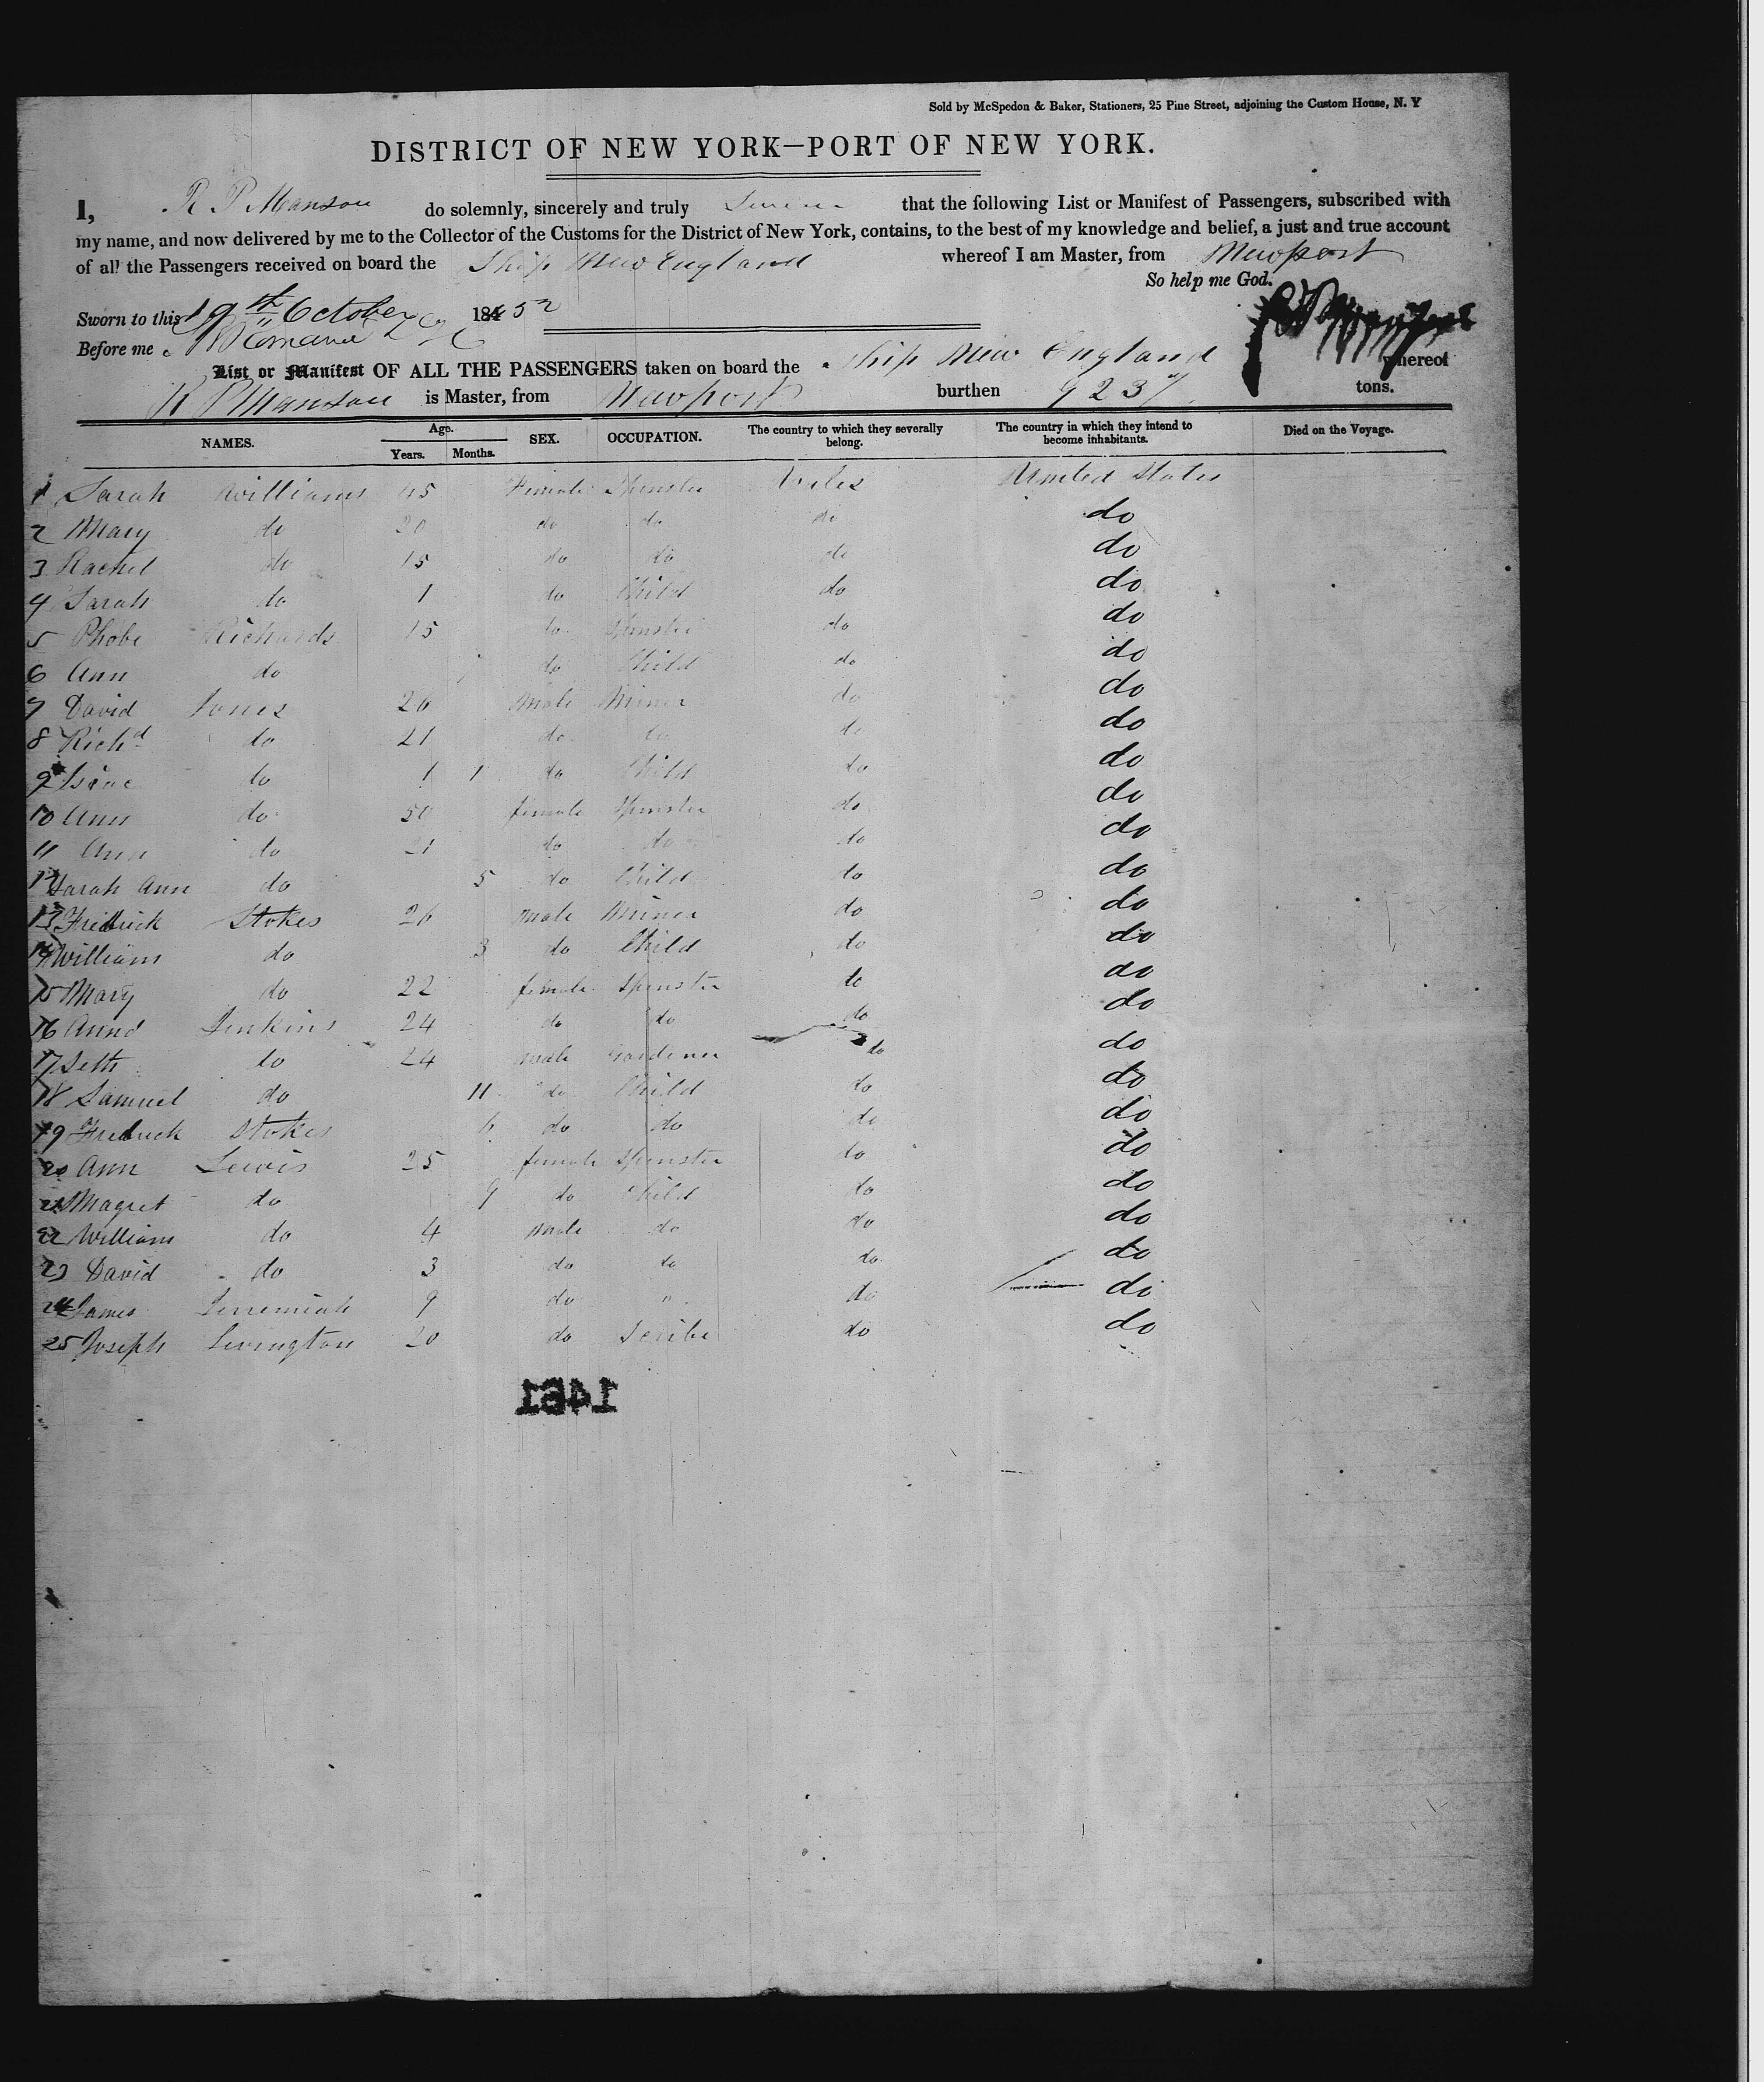 Sold by McSpedon & Baker, Stationers, 25 Pine Street, adjoining the Custom House, N. Y
DISTRICT OF NEW YORK—PORT OF NEW YORK.
I, R P Manson do solemnly, sincerely and truly that the following List or Manifest of Passengers, subscribed with
my name, and now delivered by me to the Collector of the Customs for the District of New York, contains, to the best of my knowledge and belief, a just and true account
of all the Passengers received on board the Ship New England whereof I am Master, from Newport
So help me God.
Sworn to this 19th October 18452
Before me
List or Manifest OF ALL THE PASSENGERS taken on board the Ship New England whereof
R P Manson is Master, from Newport burthen 923 tons.
NAMES. Age. Years. Months. SEX. OCCUPATION. The country to which they severally belong. The country in which they intend to become inhabitants. Died on the Voyage.
1 Sarah Williams 45 Female Spinster Wales United States
2 Mary do 20 do do do do
3 Rachel do 15 do do do do
4 Sarah do 1 do Child do do
5 Phobe Richards 15 do Spinster do do
6 Ann do do Child do do
7 David Jones 26 Male Miner do do
8 Richd do 21 do do do do
9 Isaac do 1 1 do Child do do
10 Ann do 50 female Spinster do do
11 Ann do 21 do do do do
12 Sarah Ann do 5 do Child do do
13 Fredrick Stokes 26 Male Miner do do
14 William do 3 do Child do do
15 Mary do 22 female Spinster do do
16 Annd Jenkins 24 do do do do
17 Seth do 24 Male Gardener do do
18 Samuel do 11 do Child do do
19 Fredrick Stokes 6 do do do do
20 Ann Lewis 25 female Spinster do do
21 Magret do 9 do Child do do
22 William do 4 Male do do do
23 David do 3 do do do do
24 James Jerremiah 9 do " do do
25 Joseph Livington 20 do Scribe do do
1461